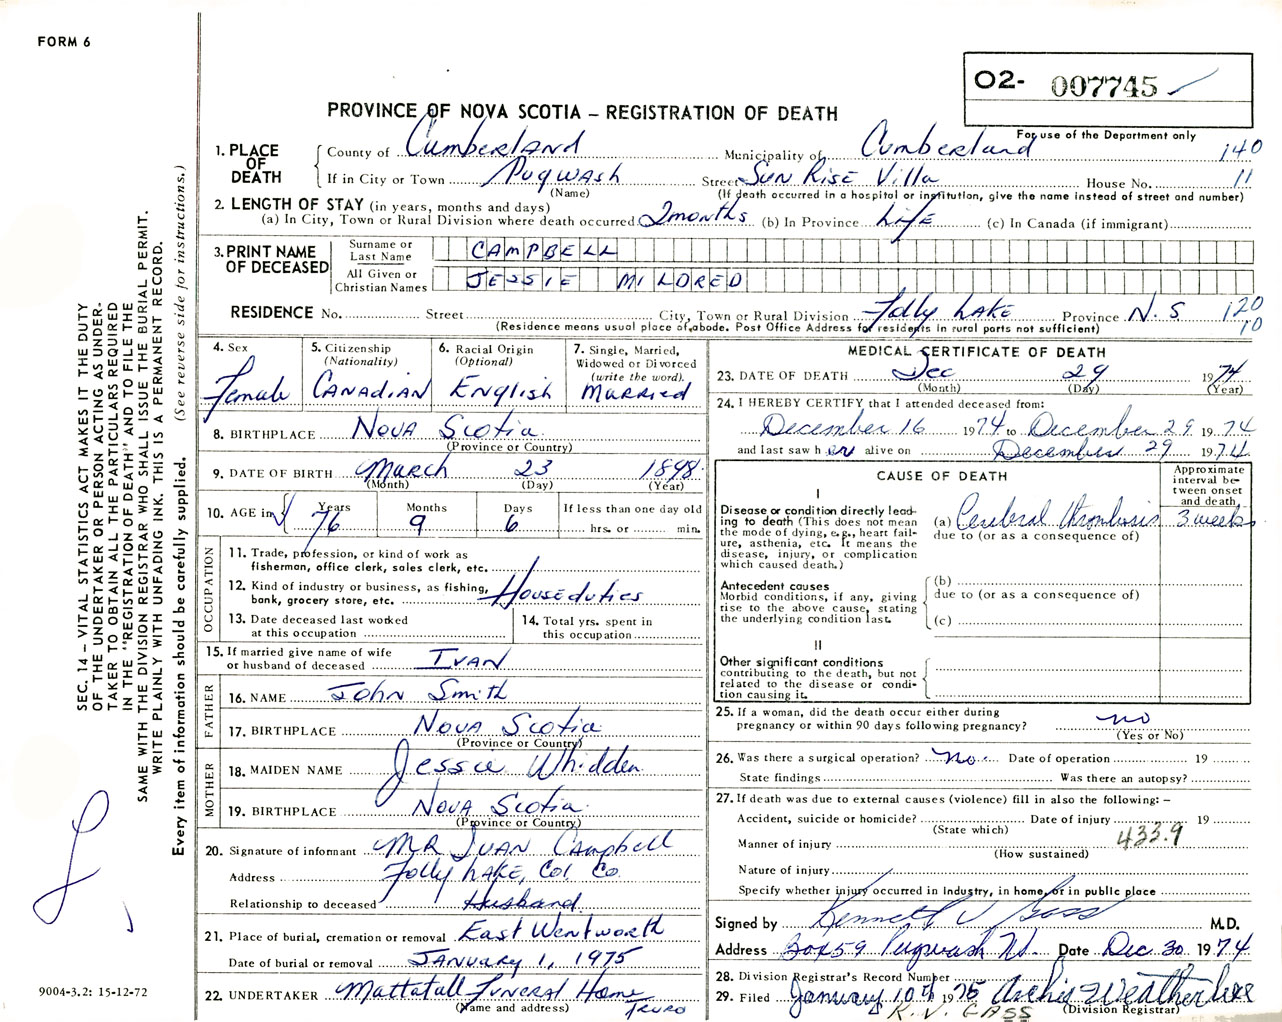 FORM 6
O2- 007745
For use of the Department only
PROVINCE OF NOVA SCOTIA – REGISTRATION OF DEATH
1. PLACE OF DEATH
County of Cumberland Municipality of Cumberland 140
If in City or Town Pugwash Street Sun Rise Villa House No. 11
(Name) (If death occurred in a hospital or institution, give the name instead of street and number)
2. LENGTH OF STAY (in years, months and days)
(a) In City, Town or Rural Division where death occurred 2 months (b) In Province Life (c) In Canada (if immigrant)
3. PRINT NAME OF DECEASED
Surname or Last Name CAMPBELL
All Given or Christian Names JESSIE MILDRED
RESIDENCE No. Street City, Town or Rural Division Folly Lake Province N.S 120
(Residence means usual place of abode. Post Office Address for residents in rural parts not sufficient) 10
4. Sex Female
5. Citizenship (Nationality) Canadian
6. Racial Origin (Optional) English
7. Single, Married, Widowed or Divorced (write the word) Married
8. BIRTHPLACE Nova Scotia
(Province or Country)
9. DATE OF BIRTH March 23 1898
(Month) (Day) (Year)
10. AGE in Years 76 Months 9 Days 6 If less than one day old hrs. or min.
OCCUPATION
11. Trade, profession, or kind of work as fisherman, office clerk, sales clerk, etc.
12. Kind of industry or business, as fishing, bank, grocery store, etc. Houseduties
13. Date deceased last worked at this occupation
14. Total yrs. spent in this occupation
15. If married give name of wife or husband of deceased Ivan
FATHER
16. NAME John Smith
17. BIRTHPLACE Nova Scotia
(Province or Country)
MOTHER
18. MAIDEN NAME Jessie Whidden
19. BIRTHPLACE Nova Scotia
(Province or Country)
20. Signature of informant Mr Ivan Campbell
Address Folly Lake, Col. Co.
Relationship to deceased Husband
21. Place of burial, cremation or removal East Wentworth
Date of burial or removal January 1, 1975
22. UNDERTAKER Mattatall Funeral Home
(Name and address) Truro
MEDICAL CERTIFICATE OF DEATH
23. DATE OF DEATH Dec 29 1974
(Month) (Day) (Year)
24. I HEREBY CERTIFY that I attended deceased from:
December 16 1974 to December 29 1974
and last saw her alive on December 29 1974
CAUSE OF DEATH
Approximate interval between onset and death
I
Disease or condition directly leading to death (This does not mean the mode of dying, e.g., heart failure, asthenia, etc. It means the disease, injury, or complication which caused death.)
(a) Cerebral thrombosis 3 weeks
due to (or as a consequence of)
Antecedent causes
Morbid conditions, if any, giving rise to the above cause, stating the underlying condition last.
(b)
due to (or as a consequence of)
(c)
II
Other significant conditions contributing to the death, but not related to the disease or condition causing it.
25. If a woman, did the death occur either during pregnancy or within 90 days following pregnancy? no
(Yes or No)
26. Was there a surgical operation? no Date of operation 19
State findings Was there an autopsy?
27. If death was due to external causes (violence) fill in also the following: –
Accident, suicide or homicide? Date of injury 19
(State which) 433.9
Manner of injury
(How sustained)
Nature of injury
Specify whether injury occurred in industry, in home, or in public place
Signed by Kenneth V Gass M.D.
Address Box 59 Pugwash NS. Date Dec 30 1974
28. Division Registrar's Record Number
29. Filed January 10th 1975 Archie Weatherbee
(Division Registrar)
K. V. GASS
SEC. 14 – VITAL STATISTICS ACT MAKES IT THE DUTY
OF THE UNDERTAKER OR PERSON ACTING AS UNDER-
TAKER TO OBTAIN ALL THE PARTICULARS REQUIRED
IN THE "REGISTRATION OF DEATH" AND TO FILE THE
SAME WITH THE DIVISION REGISTRAR WHO SHALL ISSUE THE BURIAL PERMIT.
WRITE PLAINLY WITH UNFADING INK. THIS IS A PERMANENT RECORD.
Every item of information should be carefully supplied. (See reverse side for instructions.)
9004-3.2: 15-12-72